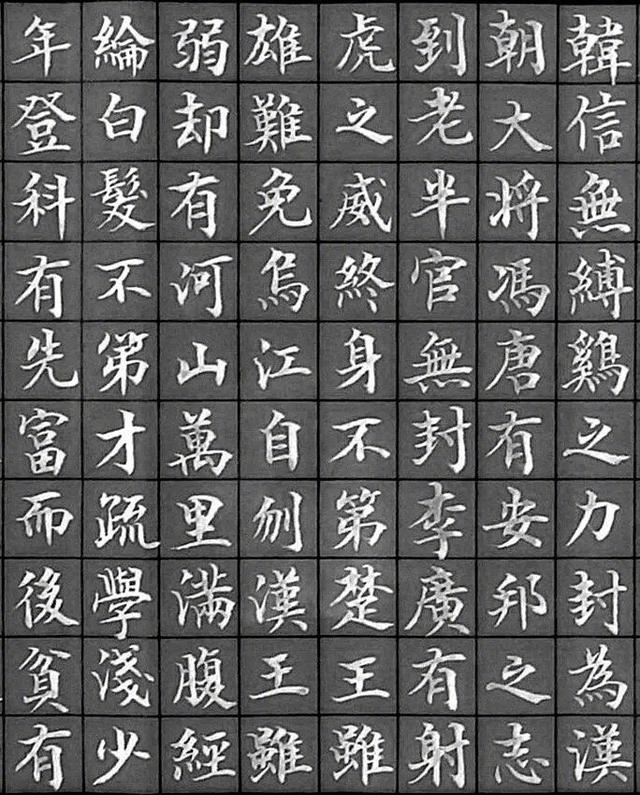 韓信無縛鷄之力封為漢
朝大將馮唐有安邦之志
到老半官無封李廣有射
虎之威終身不第楚王雖
雄難免烏江自刎漢王雖
弱却有河山萬里滿腹經
綸白髮不第才疏學淺少
年登科有先富而後貧有